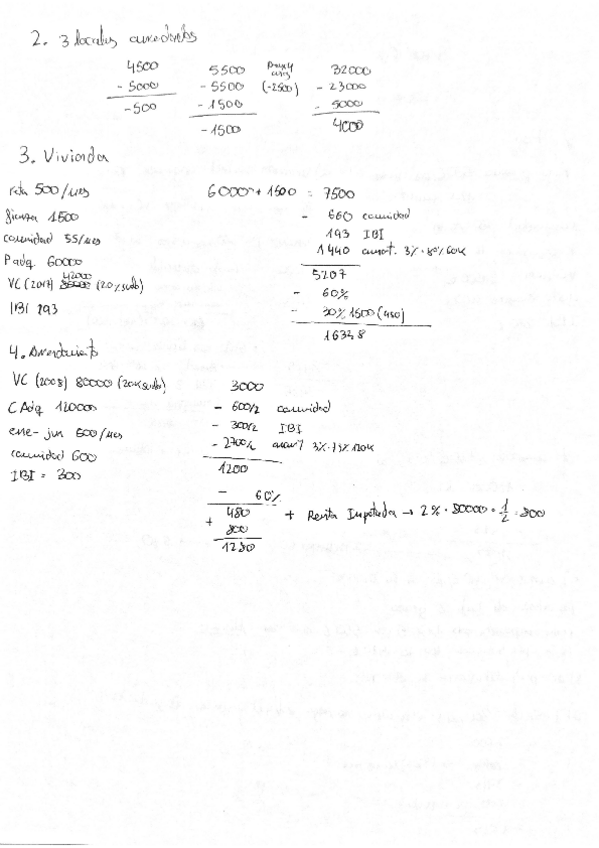 2. 3 locales arrendados
4500 5500 32000
- 5000 - 5500 (-2500) - 23000
-500 - 1500 - 5000
-1500 4000
3. Vivienda
renta 500/mes 6000 + 1500 = 7500
fianza 1500 - 660 comunidad
comunidad 55/mes 193 IBI
P adq. 60000 1440 amort. 3% · 80% 60K
42000
VC (2017) (20% suelo) 5207
IBI 193 - 60%
- 30% 1500 (450)
1634'8
4. Arrendamiento
VC (2008) 80000 (20% suelo) 3000
C Adq 120000 - 600/2 comunidad
ene - jun 500/mes - 300/2 IBI
comunidad 600 - 2700/2 amort 3% · 75% 120K
IBI = 300 1200
- 60%
480 + Renta Imputada → 2% · 80000 · 1/2 = 800
+ 800
1280